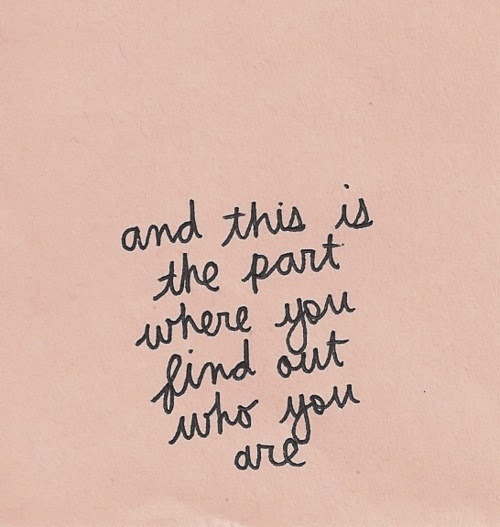 and this is
the part
where you
find out
who you
are